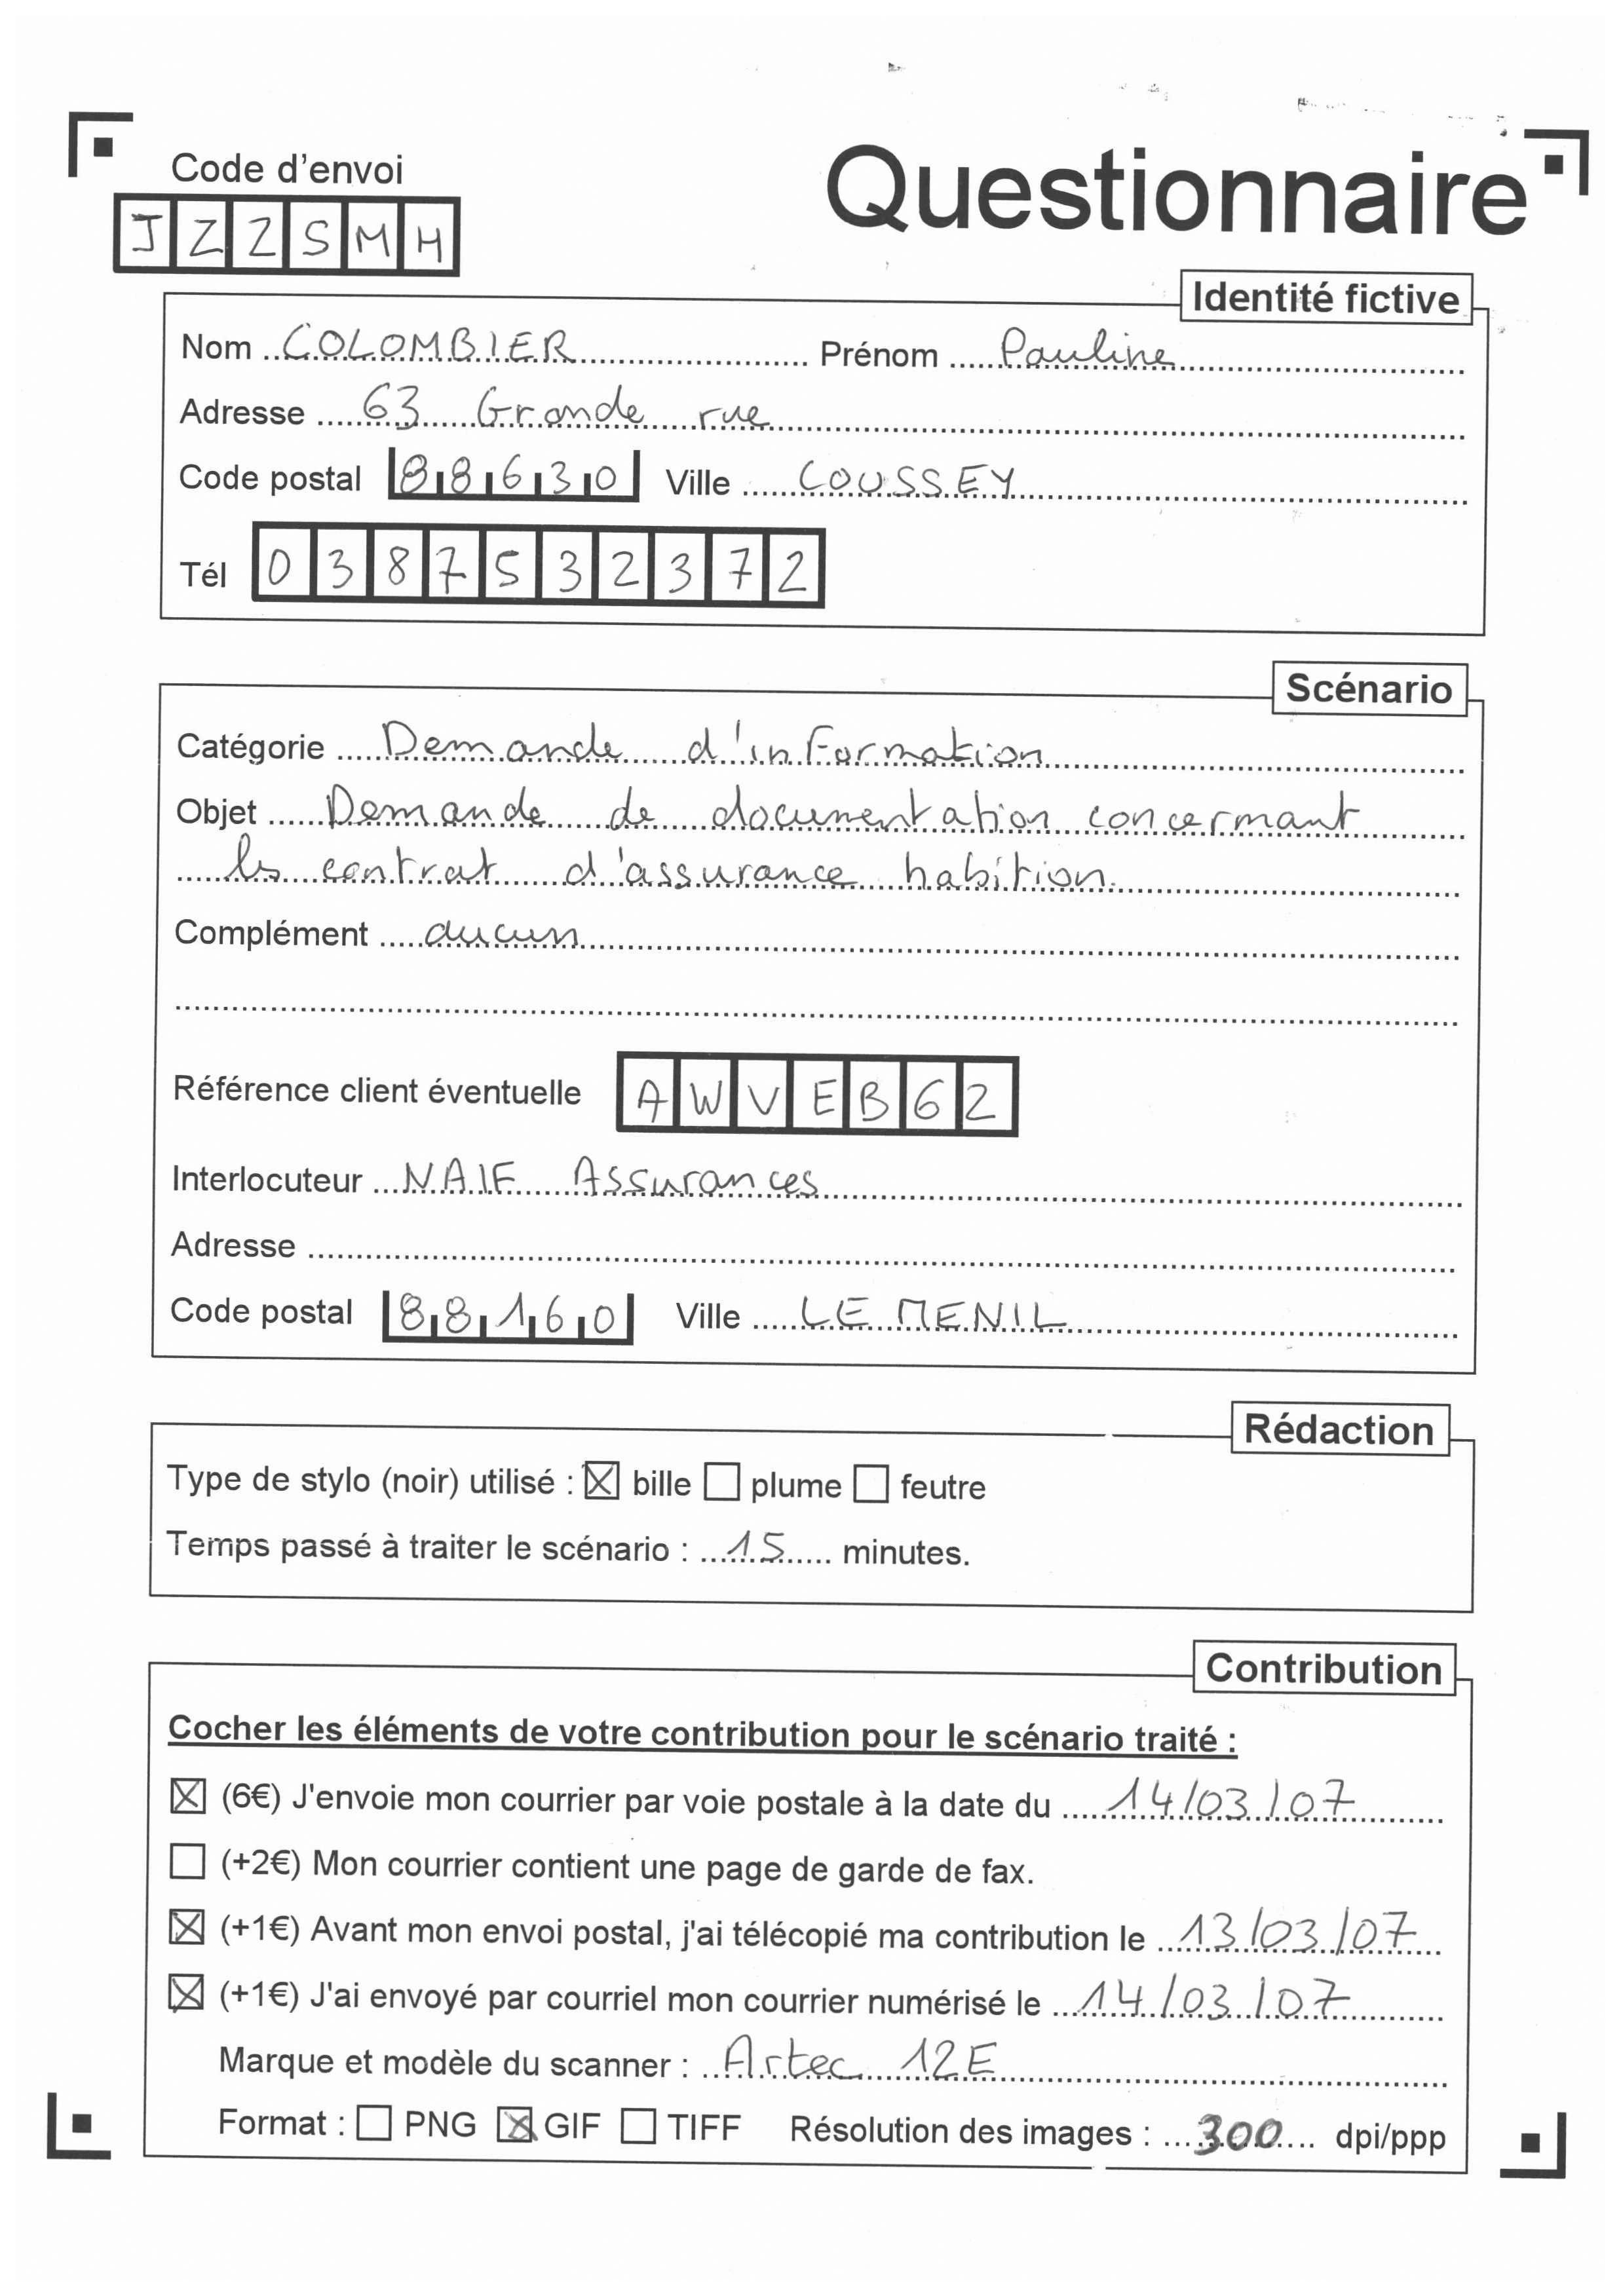 Code d'envoi
Questionnaire
JZZSMH
Identité fictive
Nom COLOMBIER Prénom Pauline
Adresse 63 Grande rue
Code postal 88630 Ville COUSSEY
Tél 0387532372
Scénario
Catégorie Demande d'information
Objet Demande de documentation concernant
les contrat d'assurance habition.
Complément aucun
Référence client éventuelle AWVEB62
Interlocuteur NAIF Assurances
Adresse
Code postal 88160 Ville LE MENIL
Rédaction
Type de stylo (noir) utilisé : ☒ bille ☐ plume ☐ feutre
Temps passé à traiter le scénario : 15 minutes.
Contribution
Cocher les éléments de votre contribution pour le scénario traité :
☒ (6€) J'envoie mon courrier par voie postale à la date du 14/03/07
☐ (+2€) Mon courrier contient une page de garde de fax.
☒ (+1€) Avant mon envoi postal, j'ai télécopié ma contribution le 13/03/07
☒ (+1€) J'ai envoyé par courriel mon courrier numérisé le 14/03/07
Marque et modèle du scanner : Artec 12E
Format : ☐ PNG ☒ GIF ☐ TIFF Résolution des images : 300 dpi/ppp